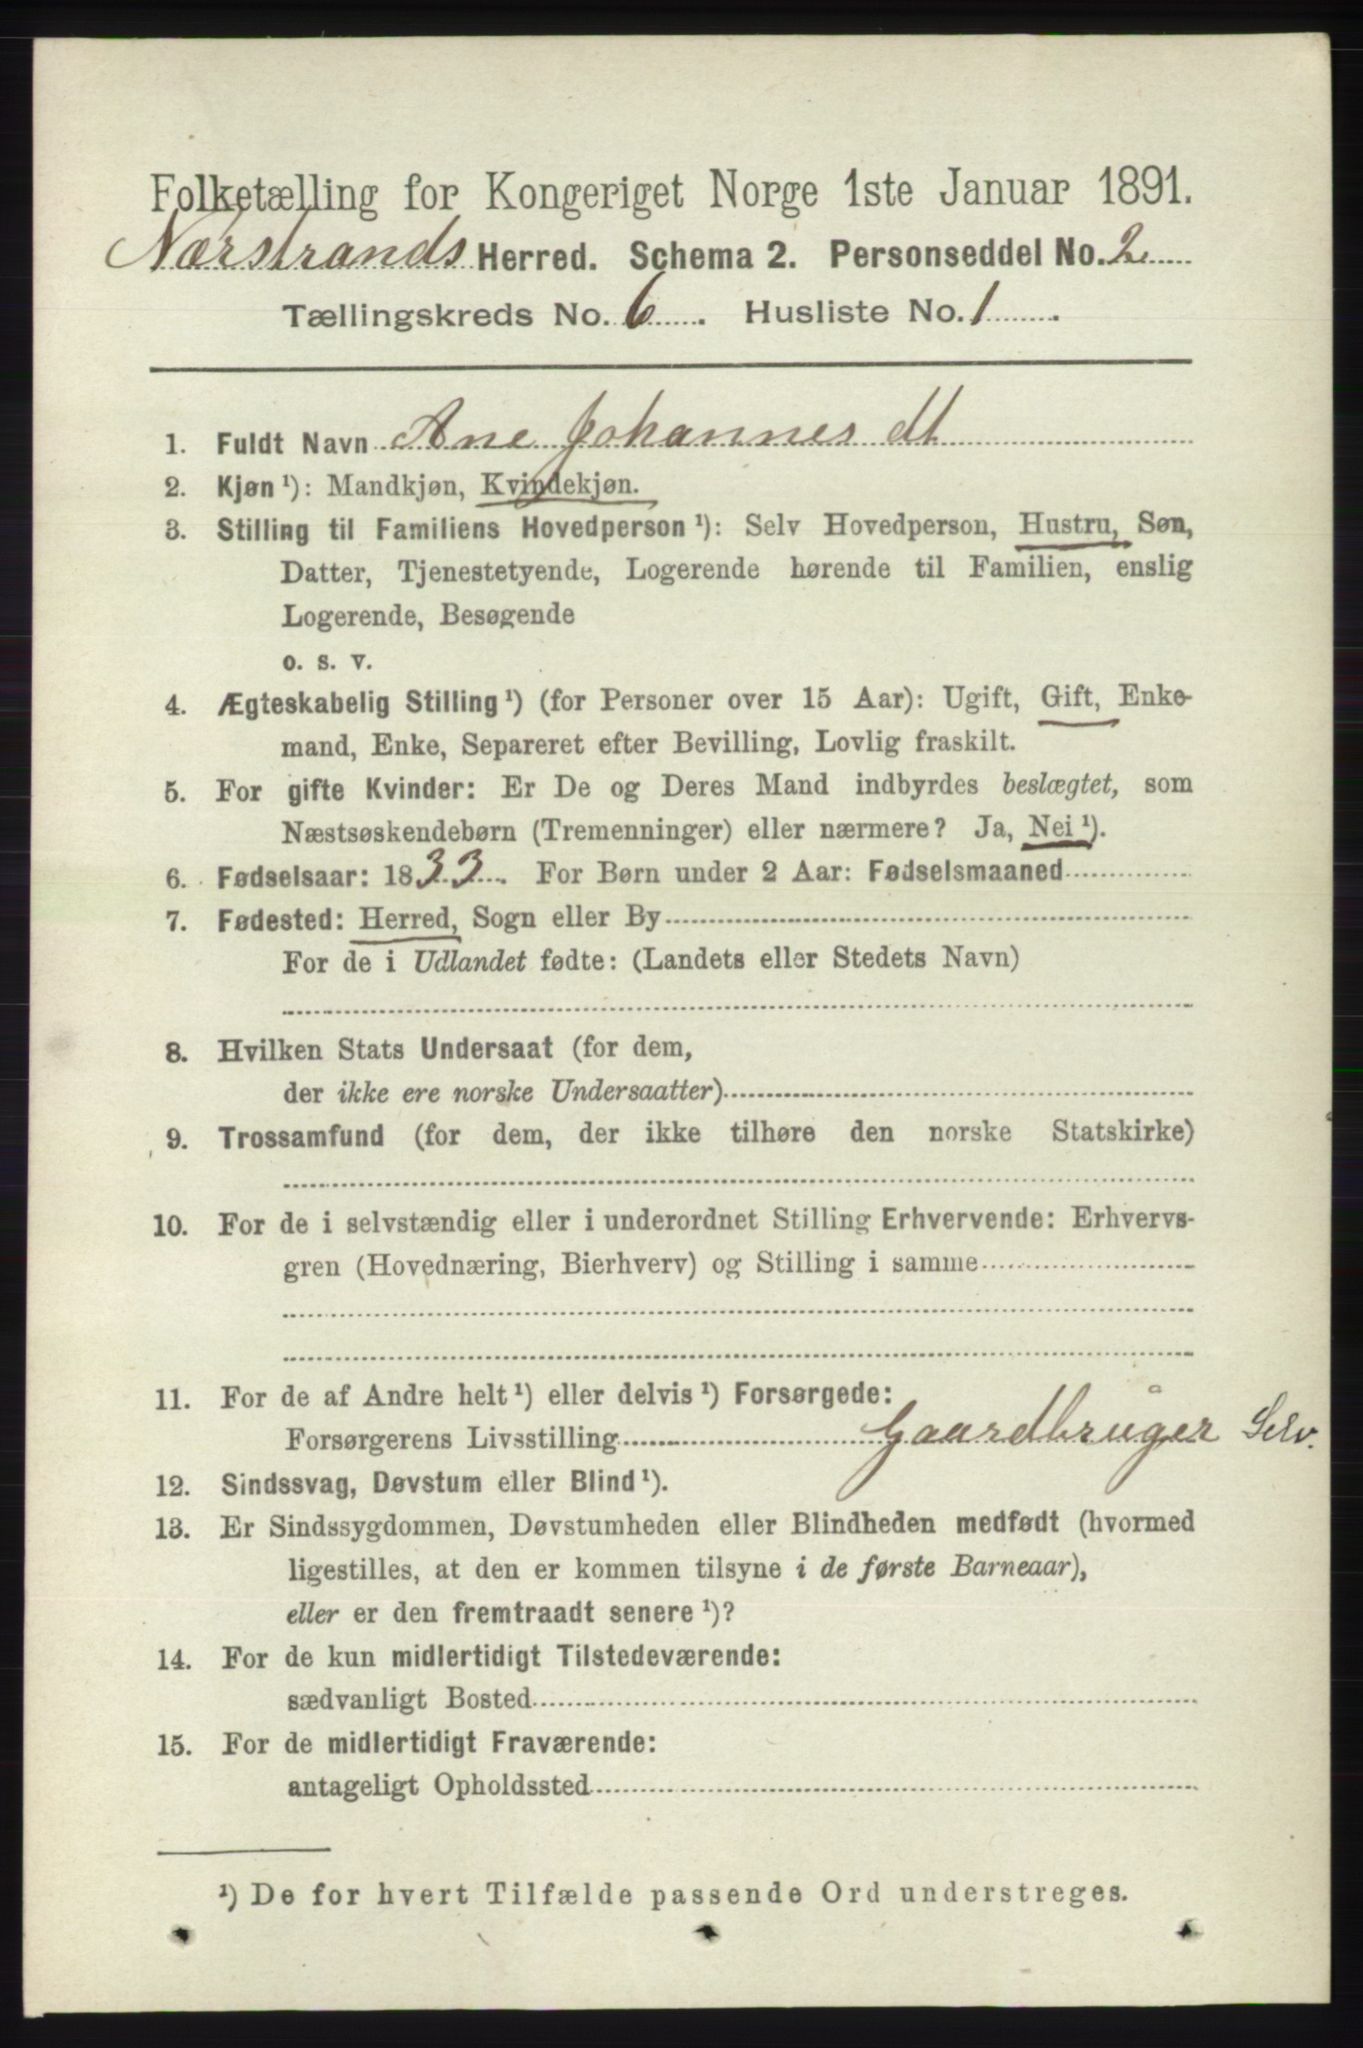 Folketælling for Kongeriget Norge 1ste Januar 1891.
Nærstrands Herred. Schema 2. Personseddel No. 2
Tællingskreds No. 6. Husliste No. 1.
1. Fuldt Navn Ane Johannes dt
2. Kjøn ¹): Mandkjøn, Kvindekjøn.
3. Stilling til Familiens Hovedperson ¹): Selv Hovedperson, Hustru, Søn,
Datter, Tjenestetyende, Logerende hørende til Familien, enslig
Logerende, Besøgende
o. s. v.
4. Ægteskabelig Stilling ¹) (for Personer over 15 Aar): Ugift, Gift, Enke-
mand, Enke, Separeret efter Bevilling, Lovlig fraskilt.
5. For gifte Kvinder: Er De og Deres Mand indbyrdes beslægtet, som
Næstsøskendebørn (Tremenninger) eller nærmere? Ja, Nei ¹).
6. Fødselsaar: 1833. For Børn under 2 Aar: Fødselsmaaned
7. Fødested: Herred, Sogn eller By
For de i Udlandet fødte: (Landets eller Stedets Navn)
8. Hvilken Stats Undersaat (for dem,
der ikke ere norske Undersaatter)
9. Trossamfund (for dem, der ikke tilhøre den norske Statskirke)
10. For de i selvstændig eller i underordnet Stilling Erhvervende: Erhvervs-
gren (Hovednæring, Bierhverv) og Stilling i samme
11. For de af Andre helt ¹) eller delvis ¹) Forsørgede:
Forsørgerens Livsstilling Gaardbruger Selv.
12. Sindssvag, Døvstum eller Blind ¹).
13. Er Sindssygdommen, Døvstumheden eller Blindheden medfødt (hvormed
ligestilles, at den er kommen tilsyne i de første Barneaar),
eller er den fremtraadt senere ¹)?
14. For de kun midlertidigt Tilstedeværende:
sædvanligt Bosted
15. For de midlertidigt Fraværende:
antageligt Opholdssted
¹) De for hvert Tilfælde passende Ord understreges.